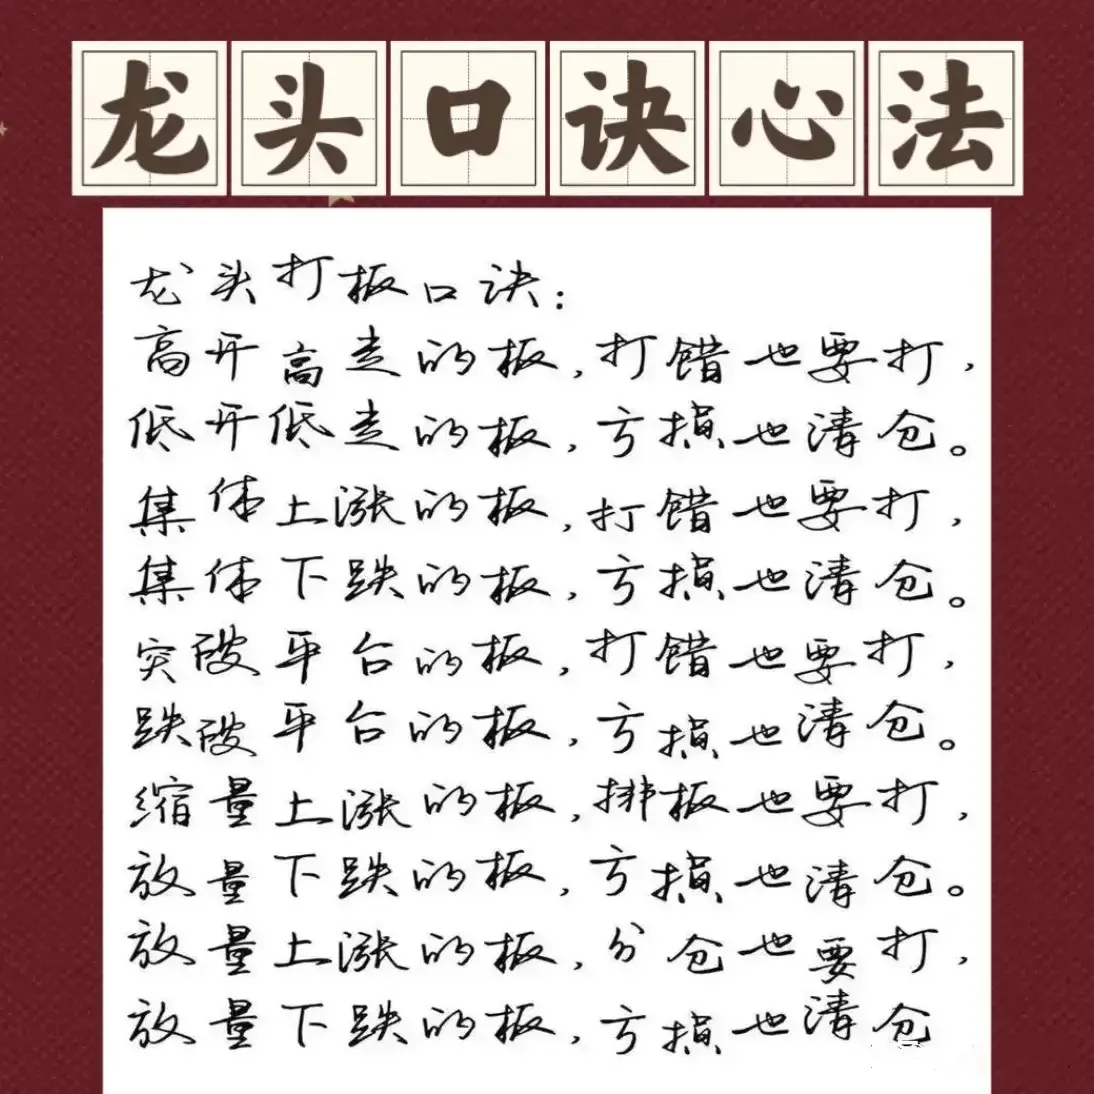 龙头口诀心法
龙头打板口诀:
高开高走的板,打错也要打,
低开低走的板,亏损也清仓。
集体上涨的板,打错也要打,
集体下跌的板,亏损也清仓。
突破平台的板,打错也要打,
跌破平台的板,亏损也清仓。
缩量上涨的板,排板也要打,
放量下跌的板,亏损也清仓。
放量上涨的板,分仓也要打,
放量下跌的板,亏损也清仓